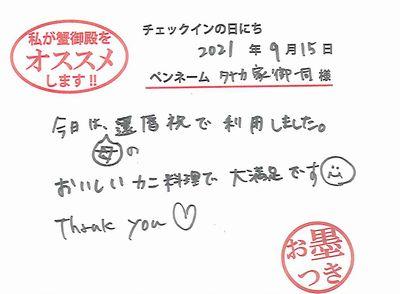 私が蟹御殿を
オススメ
します!!
チェックインの日にち
2021 年 9 月 15 日
ペンネーム 家御一同 様
今日は、還暦祝で利用しました。
母の
おいしいカニ料理で大満足です
Thank you♡
お墨
つき